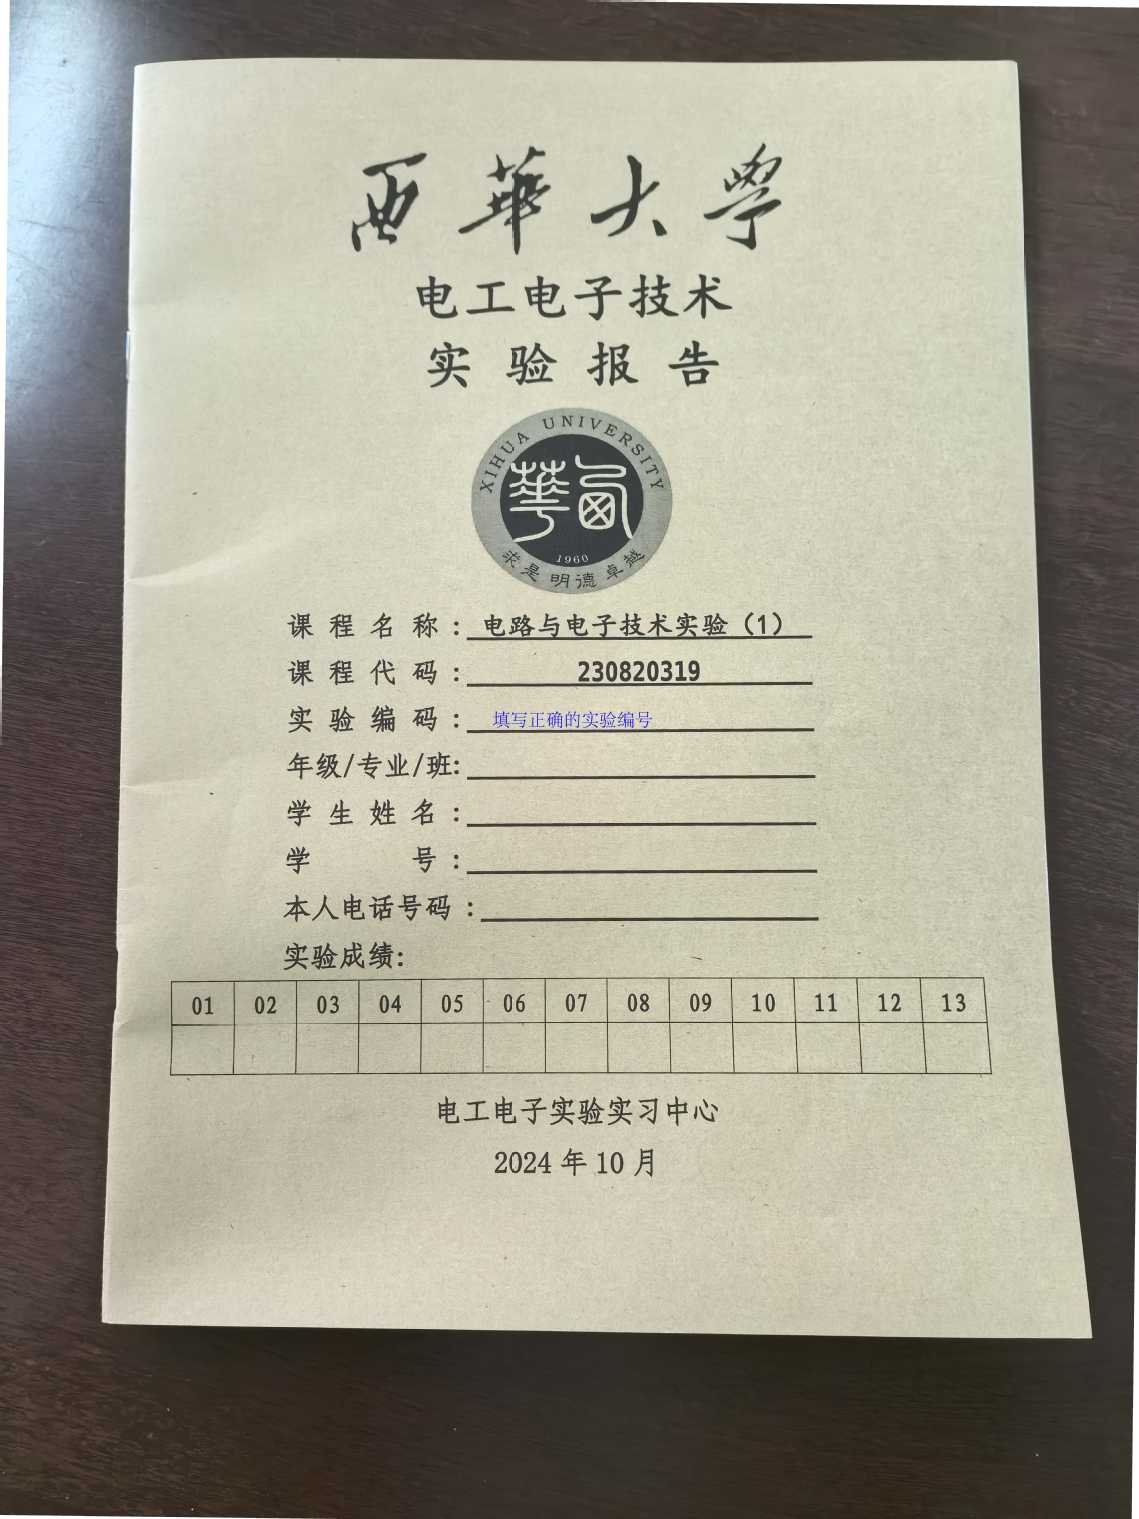 西華大學
电工电子技术
实验报告
XIHUA UNIVERSITY
華西
1960
求是明德卓越
课程名称：电路与电子技术实验（1）
课程代码：230820319
实验编码：填写正确的实验编号
年级/专业/班:
学生姓名：
学号：
本人电话号码：
实验成绩:
01 02 03 04 05 06 07 08 09 10 11 12 13
电工电子实验实习中心
2024年10月